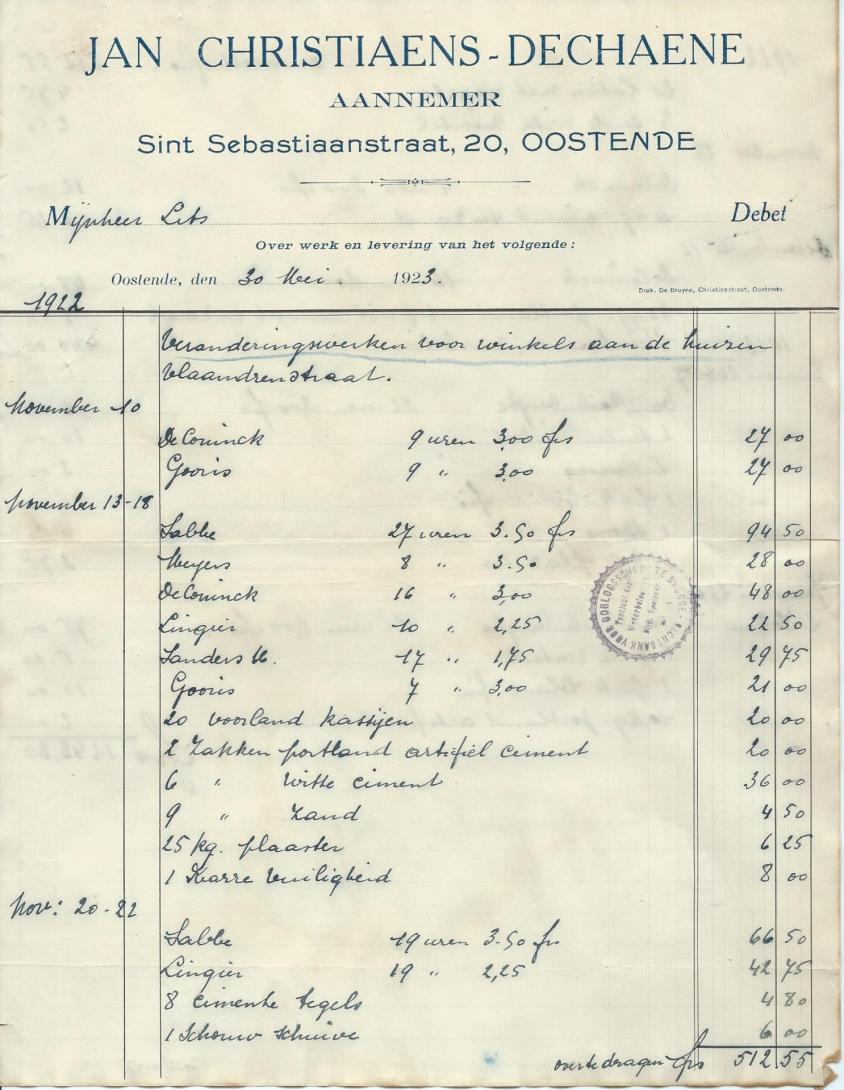 JAN CHRISTIAENS-DECHAENE
AANNEMER
Sint Sebastiaanstraat, 20, OOSTENDE
Mijnheer Lets Debet
Over werk en levering van het volgende :
Oostende, den 30 Mei. 1923.
Druk. De Bruyne, Christinestraat, Oostende.
1922
Veranderingswerken voor winkels aan de huizen
Vlaandrenstraat.
November 10
DeConinck 9 uren 3,00 frs 27 00
Gooris 9 " 3,00 27 00
November 13-18
Labbe 27 uren 3.50 frs 94 50
Meyers 8 " 3.50 28 00
DeConinck 16 " 3,00 48 00
Lingier 10 " 2,25 22 50
Sanders 17 " 1,75 29 75
Gooris 7 " 3,00 21 00
20 voorland kassijen 20 00
2 Zakken portland artifiel ciment 20 00
6 " Witte ciment 36 00
9 " Zand 4 50
25 kg. plaaster 6 25
1 Karre Vuiligheid 8 00
Nov: 20-22
Labbe 19 uren 3.50 frs 66 50
Lingier 19 " 2,25 42 75
8 cimente tegels 4 80
1 Schouw Schuive 6 00
overtedragen frs 512.55